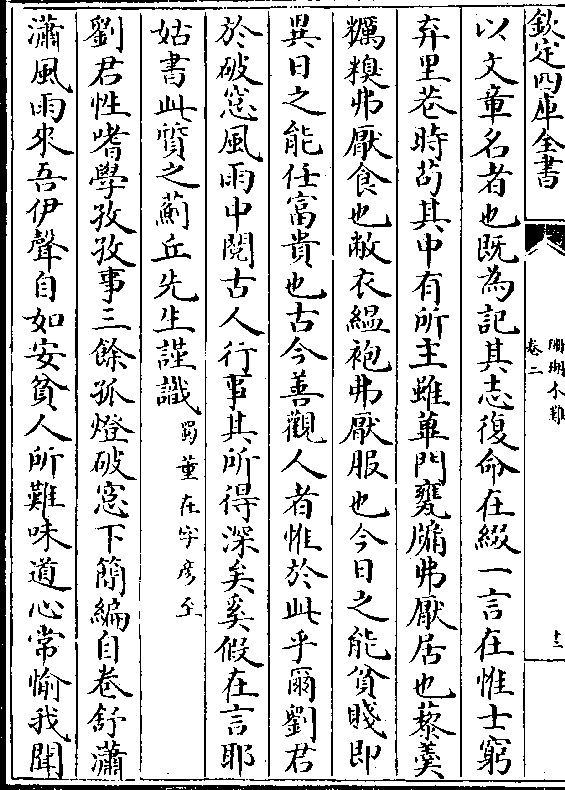 欽定四庫全書
珊瑚木難
卷二
十二
以文章名者也既為記其志復命在綴一言在惟士窮
弃里巷時苟其中有所主雖蓽門甕牖弗厭居也藜羹
糲糗弗厭食也敝衣緼袍弗厭服也今日之能貧賤即
異日之能任富貴也古今善觀人者惟於此乎爾劉君
於破窓風雨中閱古人行事其所得深矣奚假在言耶
姑書此質之薊丘先生謹識蜀董在字彦至
劉君性嗜學孜孜事三餘孤燈破窓下簡編自卷舒瀟
瀟風雨來吾伊聲自如安貧人所難味道心常愉我聞